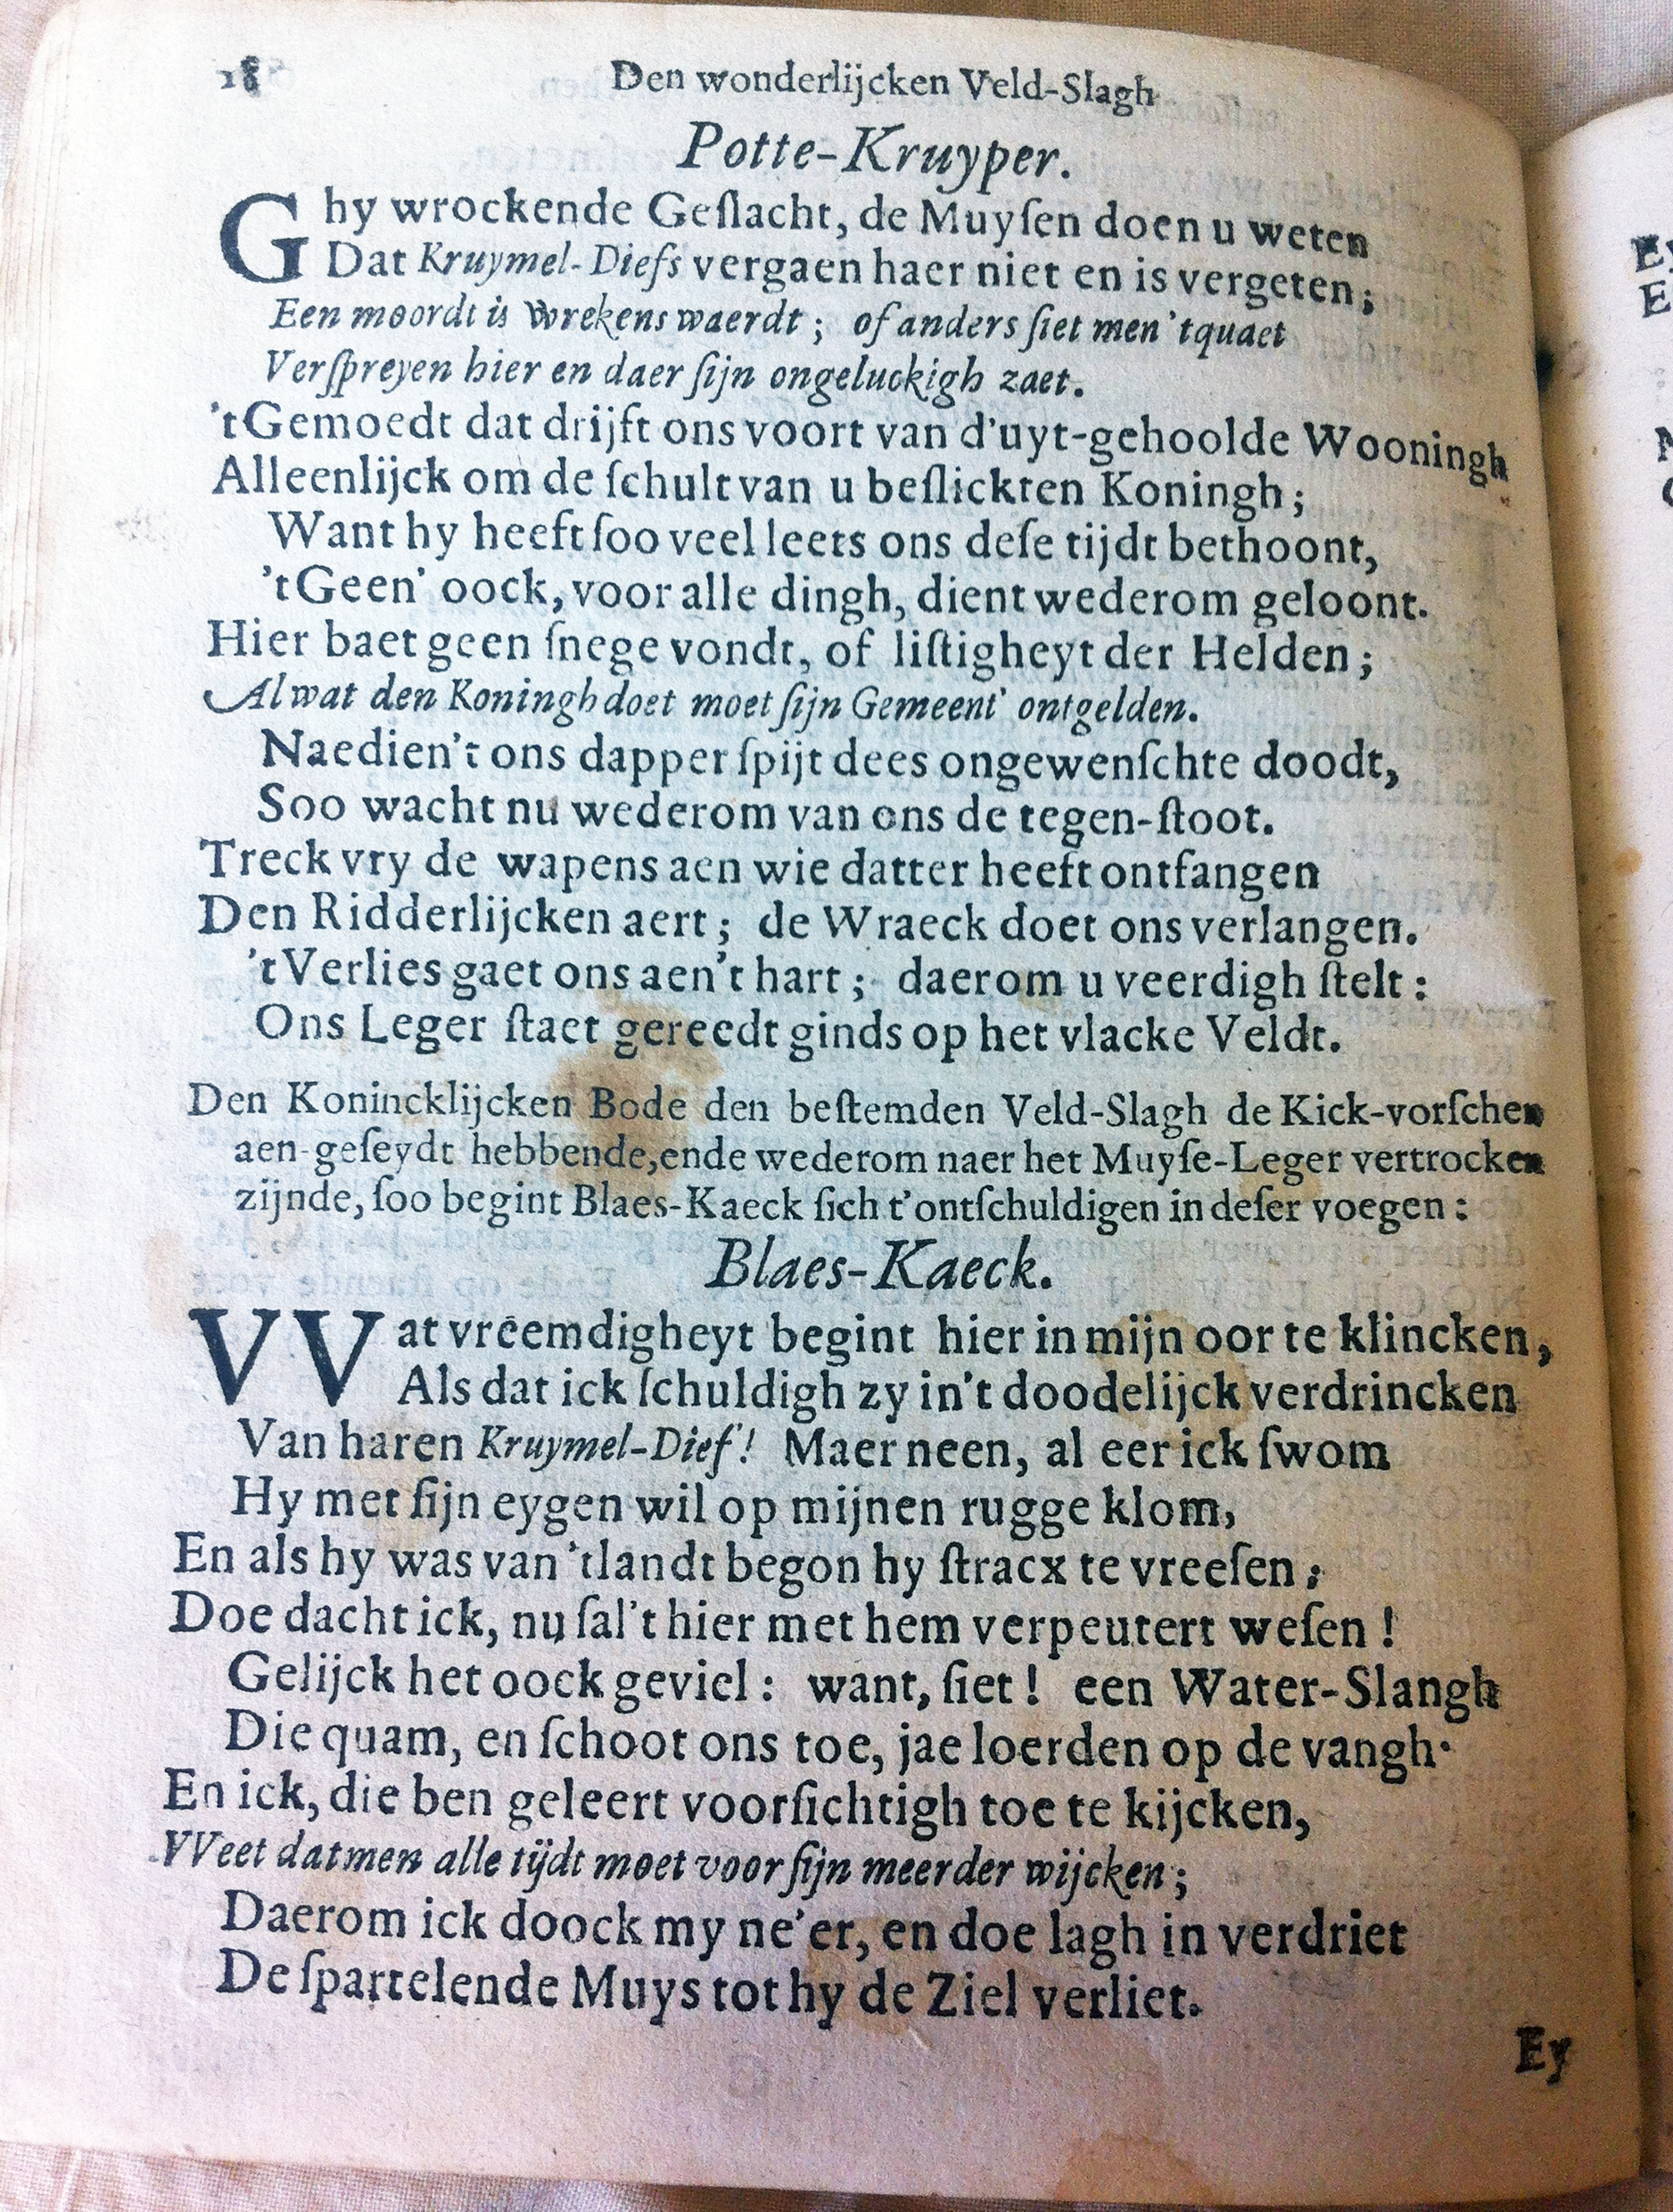 18 Den wonderlijcken Veld-Slagh
Potte-Kruyper.
Ghy wrockende Geſlacht, de Muyſen doen u weten
Dat Kruymel-Diefs vergaen haer niet en is vergeten;
Een moordt is wrekens waerdt; of anders ſiet men 't quaet
Verſpreyen hier en daer ſijn ongeluckigh zaet.
't Gemoedt dat drijft ons voort van d'uyt-gehoolde Wooningh
Alleenlijck om de ſchult van u beſlickten Koningh;
Want hy heeft ſoo veel leets ons deſe tijdt bethoont,
't Geen' oock, voor alle dingh, dient wederom geloont.
Hier baet geen ſnege vondt, of liſtigheyt der Helden;
Al wat den Koningh doet moet ſijn Gemeent' ontgelden.
Naedien't ons dapper ſpijt dees ongewenſchte doodt,
Soo wacht nu wederom van ons de tegen-ſtoot.
Treck vry de wapens aen wie datter heeft ontfangen
Den Ridderlijcken aert; de Wraeck doet ons verlangen.
't Verlies gaet ons aen't hart; daerom u veerdigh ſtelt:
Ons Leger ſtaet gereedt ginds op het vlacke Veldt.
Den Konincklijcken Bode den beſtemden Veld-Slagh de Kick-vorſchen
aen-geſeydt hebbende, ende wederom naer het Muyſe-Leger vertrocken
zijnde, ſoo begint Blaes-Kaeck ſich t'ontſchuldigen in deſer voegen:
Blaes-Kaeck.
VVat vreemdigheyt begint hier in mijn oor te klincken,
Als dat ick ſchuldigh zy in't doodelijck verdrincken
Van haren Kruymel-Dief! Maer neen, al eer ick ſwom
Hy met ſijn eygen wil op mijnen rugge klom,
En als hy was van 't landt begon hy ſtracx te vreeſen;
Doe dacht ick, nu ſal't hier met hem verpeutert weſen!
Gelijck het oock geviel: want, ſiet! een Water-Slangh
Die quam, en ſchoot ons toe, jae loerden op de vangh.
En ick, die ben geleert voorſichtigh toe te kijcken,
VVeet datmen alle tijdt moet voor ſijn meerder wijcken;
Daerom ick doock my ne'er, en doe lagh in verdriet
De ſpartelende Muys tot hy de Ziel verliet.
Ey